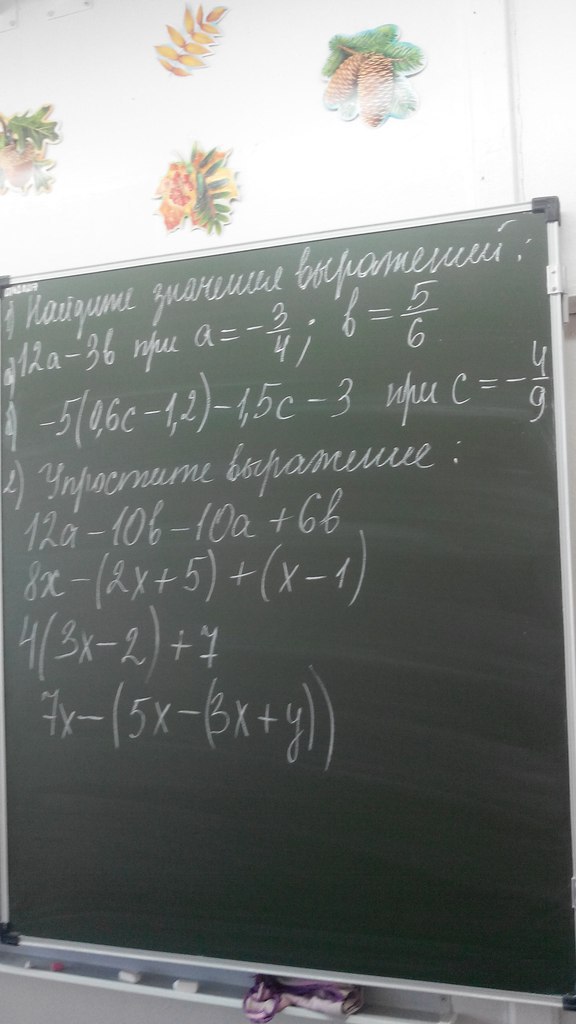 1) Найдите значение выражений:
а) 12a - 3b при a = -3/4; b = 5/6
б) -5(0,6c - 1,2) - 1,5c - 3 при c = -4/9
2) Упростите выражение:
12a - 10b - 10a + 6b
8x - (2x + 5) + (x - 1)
4(3x - 2) + 7
7x - (5x - (3x + y))